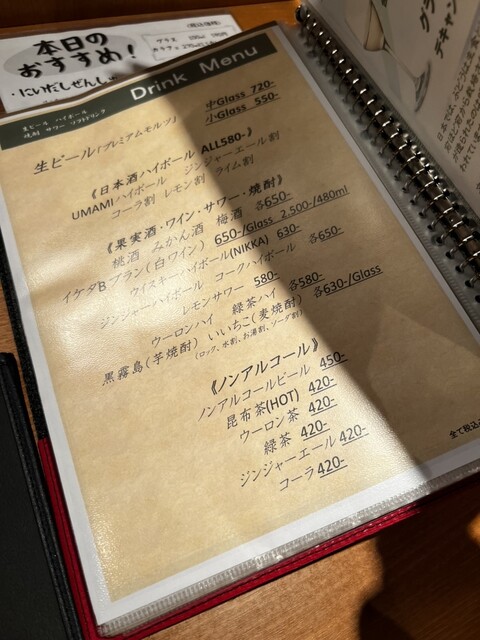 本日の
おすすめ!
・にいだしぜんしゅ
グラス
Drink Menu
生ビール ハイボール
焼酎 サワー ソフトドリンク
生ビール『プレミアムモルツ』 中Glass 720-
小Glass 550-
《日本酒ハイボール ALL580-》
UMAMIハイボール ジンジャーエール割
コーラ割 レモン割 ライム割
《果実酒・ワイン・サワー・焼酎》
桃酒 みかん酒 梅酒 各650-
イケダBブラン(白ワイン) 650-/Glass 2,500-/480ml
ウイスキーハイボール(NIKKA) 630-
ジンジャーハイボール コークハイボール 各650-
レモンサワー 580-
ウーロンハイ 緑茶ハイ 各580-
黒霧島(芋焼酎) いいちこ(麦焼酎) 各630-/Glass
(ロック、水割、お湯割、ソーダ割)
《ノンアルコール》
ノンアルコールビール 450-
昆布茶(HOT) 420-
ウーロン茶 420-
緑茶 420-
ジンジャーエール 420-
コーラ 420-
全て税込
グラ
デキャン
日本では、